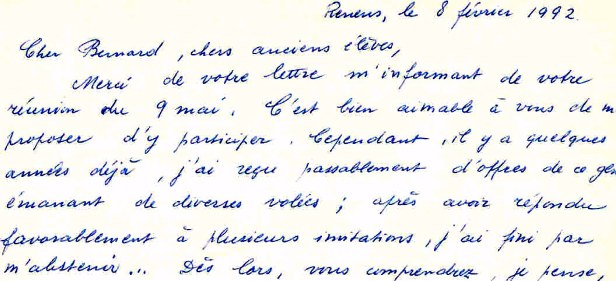 Renens, le 8 février 1992.
Cher Bernard, chers anciens élèves,
Merci de votre lettre m'informant de votre
réunion du 9 mai. C'est bien aimable à vous de m
proposer d'y participer. Cependant, il y a quelques
années déjà, j'ai reçu passablement d'offres de ce gen
émanant de diverses volées ; après avoir répondu
favorablement à plusieurs invitations, j'ai fini par
m'abstenir... Dès lors, vous comprendrez, je pense,